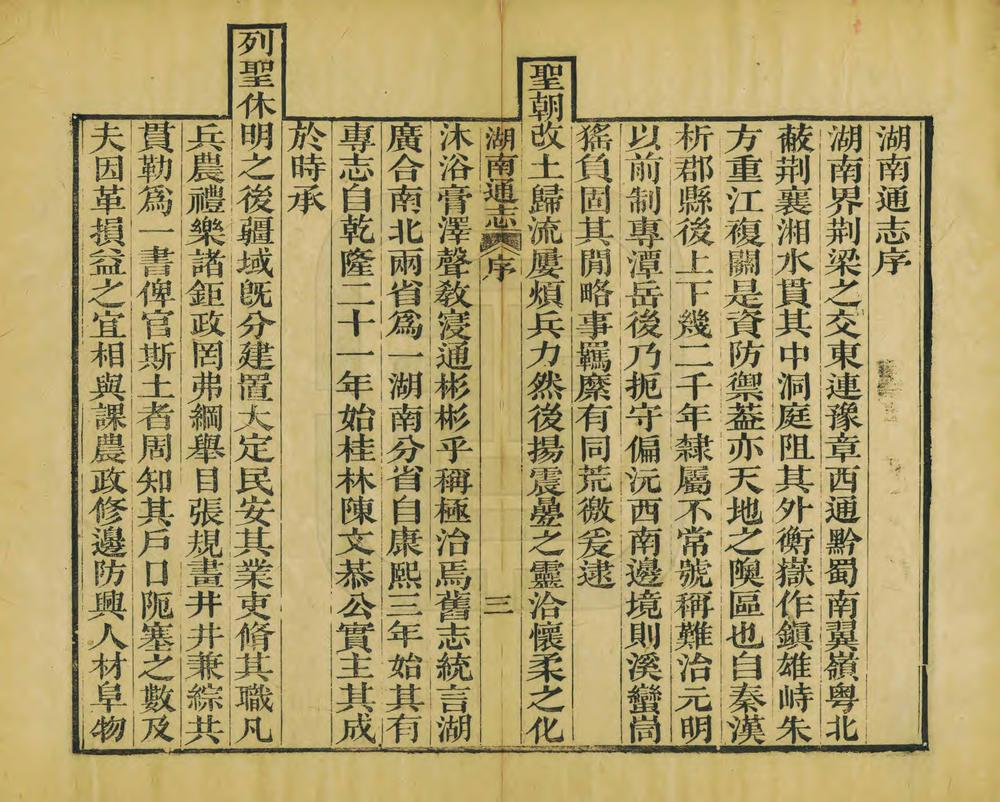 湖南通志序
湖南界荆梁之交東連豫章西通黔蜀南翼嶺粵北
蔽荆襄湘水貫其中洞庭阻其外衡嶽作鎭雄峙朱
方重江複關是資防禦葢亦天地之隩區也自秦漢
析郡縣後上下幾二千年隸屬不常號稱難治元明
以前制專潭岳後乃扼守偏沅西南邊境則溪蠻峝
猺負固其閒略事羈縻有同荒徼爰逮
聖朝改土歸流屢煩兵力然後揚震疊之靈洽懷柔之化
湖南通志 序 三
沐浴膏澤聲敎寖通彬彬乎稱極治焉舊志統言湖
廣合南北兩省爲一湖南分省自康熙三年始其有
專志自乾隆二十一年始桂林陳文恭公實主其成
於時承
列聖休明之後疆域旣分建置大定民安其業吏脩其職凡
兵農禮樂諸鉅政罔弗綱舉目張規畫井井兼綜共
貫勒爲一書俾官斯土者周知其戶口阨塞之數及
夫因革損益之宜相與課農政修邊防興人材阜物